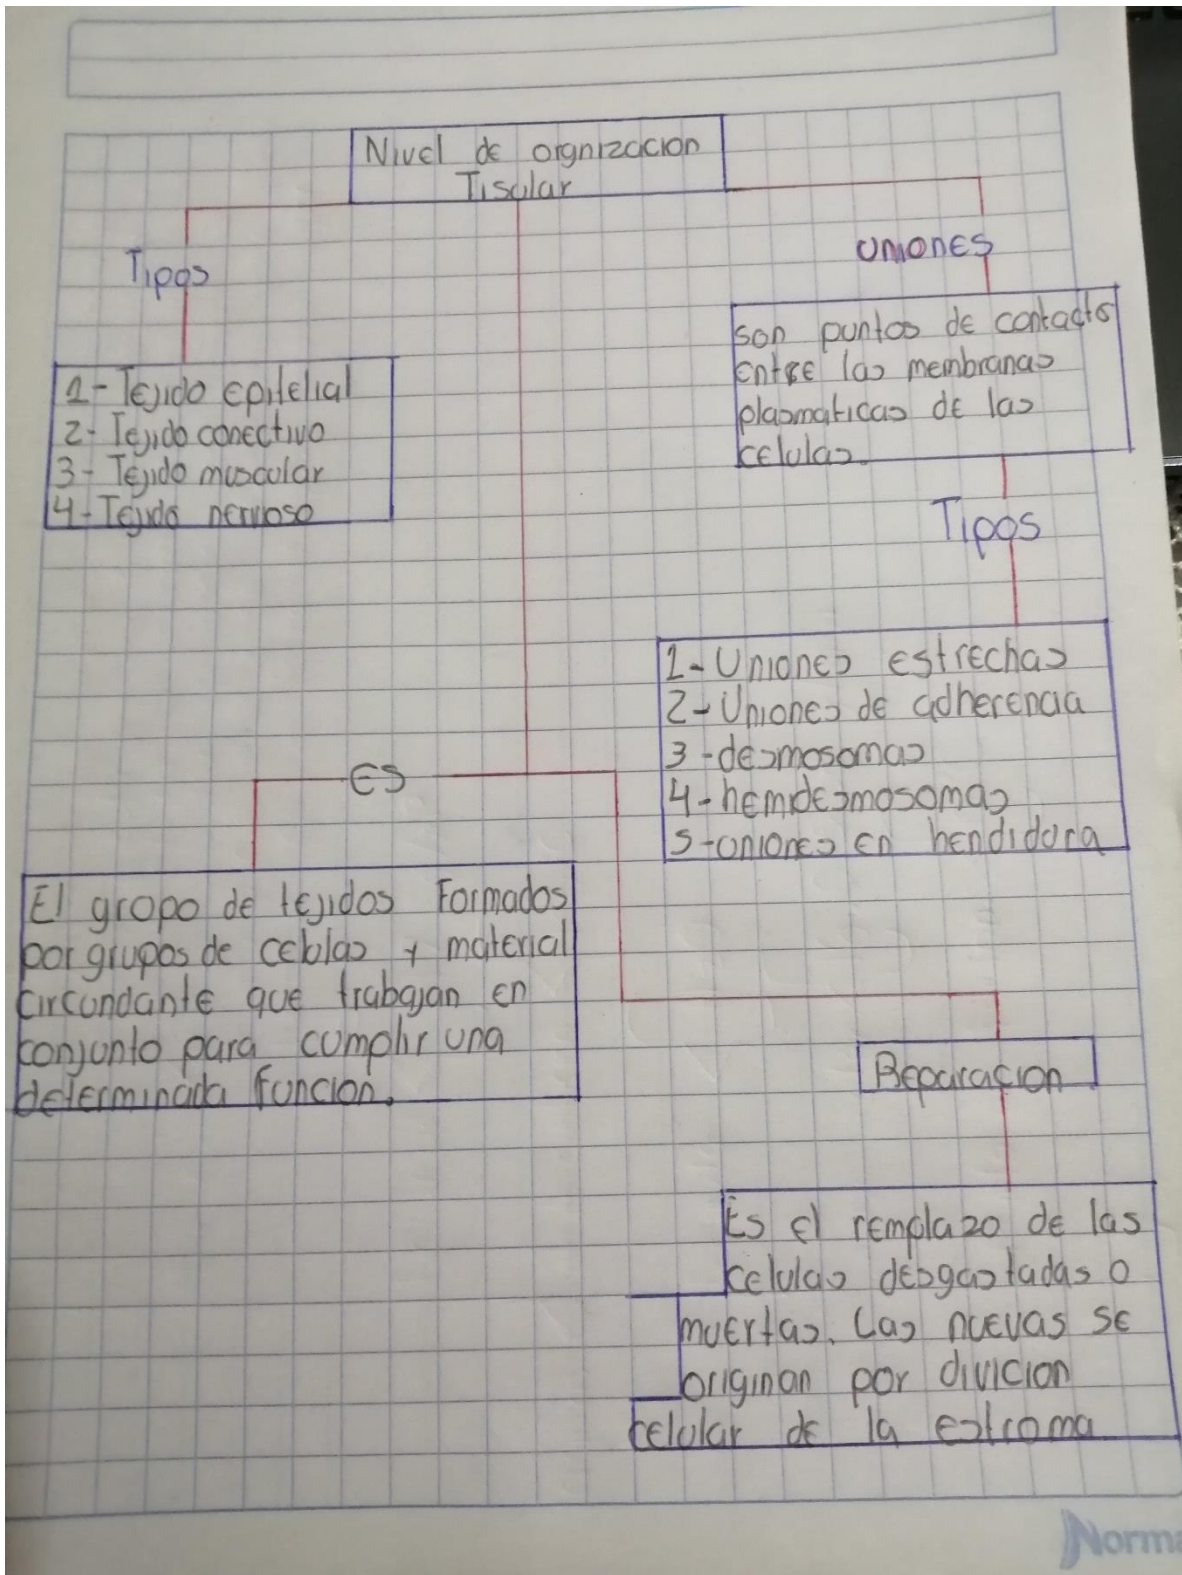 Nivel de orgnizacion
Tisular
Tipos
1- Tejido epitelial
2- Tejido conectivo
3- Tejido muscular
4- Tejido nervioso
uniones
son puntos de contacto
entre las membranas
plasmaticas de las
celulas.
Tipos
1- Uniones estrechas
2- Uniones de adherencia
3- desmosomas
4- hemidesmosomas
5- uniones en hendidura
ES
El grupo de tejidos Formados
por grupos de celulas y material
circundante que trabajan en
conjunto para cumplir una
determinada funcion.
Reparacion
Es el remplazo de las
celulas desgastadas o
muertas. Las nuevas se
originan por divicion
celular de la estroma
Norma